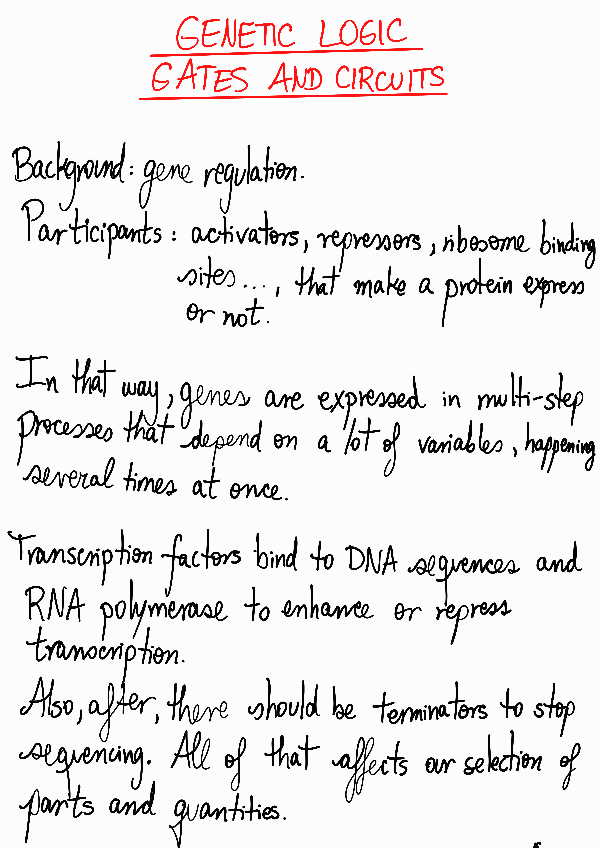 GENETIC LOGIC
GATES AND CIRCUITS
Background: gene regulation.
Participants: activators, repressors, ribosome binding
sites..., that make a protein express
or not.
In that way, genes are expressed in multi-step
processes that depend on a lot of variables, happening
several times at once.
Transcription factors bind to DNA sequences and
RNA polymerase to enhance or repress
transcription.
Also, after, there should be terminators to stop
sequencing. All of that affects our selection of
parts and quantities.